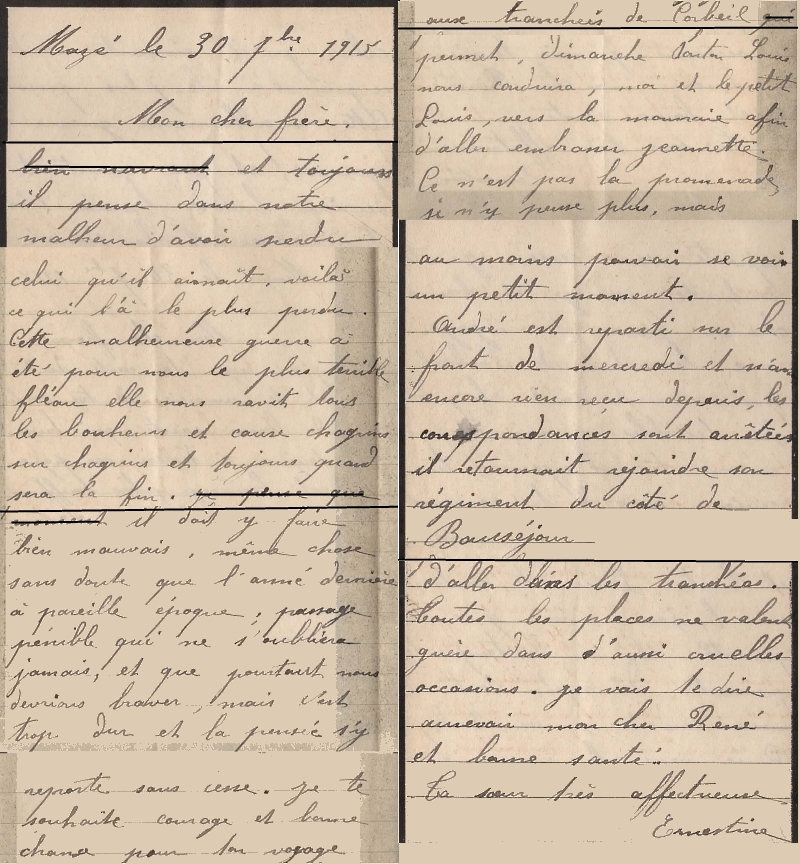 Mazé le 30 7bre 1915
Mon cher frère.
bien navrant et toujours
il pense dans notre
malheur d'avoir perdu
celui qu'il aimait, voilà
ce qui l'à le plus perdu.
Cette malheureuse guerre à
été pour nous le plus terrible
fléau elle nous ravit tous
les bonheurs et cause chagrins
sur chagrins et toujours quand
sera la fin. je pense que
moment il doit y faire
bien mauvais, même chose
sans doute que l'anné dernière
à pareille époque, passage
pénible qui ne s'oubliera
jamais, et que pourtant nous
devrions braver, mais c'est
trop dur et la pensée s'y
reporte sans cesse. je te
souhaite courage et bonne
chance pour ton voyage
aux tranchées de Corbeil qui
permet, dimanche Louis
nous conduira, moi et le petit
Louis, vers la monnaie afin
d'aller embrasser jeannette.
Ce n'est pas la promenade,
je n'y pense plus, mais
au moins pouvoir se voir
un petit moment.
André est reparti sur le
front de mercredi et n'ai
encore rien reçu depuis, les
correspondances sont arrêtées
il retournait rejoindre son
régiment du côté de
Bauséjour
d'aller dans les tranchées.
Toutes les places ne valent
guère dans d'aussi cruelles
occasions. je vais te dire
aurevoir mon cher René
et bonne santé.
Ta sœur très affectueuse
Ernestine